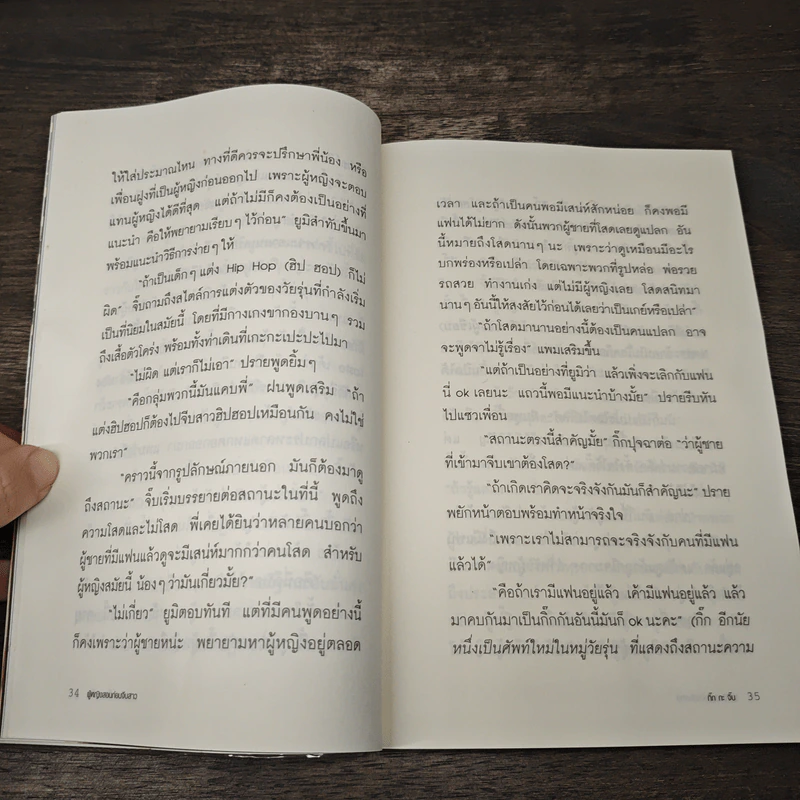 ให้ใส่ประมาณไหน ทางที่ดีควรจะปรึกษาพี่น้อง หรือ
เพื่อนฝูงที่เป็นผู้หญิงก่อนออกไป เพราะผู้หญิงจะตอบ
แทนผู้หญิงได้ดีที่สุด แต่ถ้าไม่มีก็คงต้องเป็นอย่างที่
แนะนำ คือให้พยายามเรียบๆ ไว้ก่อน" ยูมิสำทับขึ้นมา
พร้อมแนะนำวิธีการง่ายๆ ให้
"ถ้าเป็นเด็กๆ แต่ง Hip Hop (ฮิป ฮอป) ก็ไม่
ผิด" จิ๊บถามถึงสไตล์การแต่งตัวของวัยรุ่นที่กำลังเริ่ม
เป็นที่นิยมในสมัยนี้ โดยที่มีกางเกงขากองบานๆ รวม
ถึงเสื้อตัวโคร่ง พร้อมทั้งท่าเดินที่เกะกะเปะปะไปมา
"ไม่ผิด แต่เราก็ไม่เอา" ปรายพูดยิ้มๆ
"คือกลุ่มพวกนี้มันแคบพี่" ฝนพูดเสริม "ถ้า
แต่งฮิปฮอปก็ต้องไปจีบสาวฮิปฮอปเหมือนกัน คงไม่ใช่
พวกเรา"
"คราวนี้จากรูปลักษณ์ภายนอก มันก็ต้องมาดู
ถึงสถานะ" จิ๊บเริ่มบรรยายต่อสถานะในที่นี้ พูดถึง
ความโสดและไม่โสด พี่เคยได้ยินว่าหลายคนบอกว่า
ผู้ชายที่มีแฟนแล้วดูจะมีเสน่ห์มากกว่าคนโสด สำหรับ
ผู้หญิงสมัยนี้ น้องๆ ว่ามันเกี่ยวมั้ย?"
"ไม่เกี่ยว" ยูมิตอบทันที แต่ที่มีคนพูดอย่างนี้
ก็คงเพราะว่าผู้ชายหน่ะ พยายามหาผู้หญิงอยู่ตลอด
34 ผู้หญิงสอนก่อนจีบสาว
เวลา และถ้าเป็นคนพอมีเสน่ห์สักหน่อย ก็คงพอมี
แฟนได้ไม่ยาก ดังนั้นพวกผู้ชายที่โสดเลยดูแปลก อัน
นี้หมายถึงโสดนานๆ นะ เพราะว่าดูเหมือนมีอะไร
บกพร่องหรือเปล่า โดยเฉพาะพวกที่รูปหล่อ พ่อรวย
รถสวย ทำงานเก่ง แต่ไม่มีผู้หญิงเลย โสดสนิทมา
นานๆ อันนี้ให้สงสัยไว้ก่อนได้เลยว่าเป็นเกย์หรือเปล่า"
"ถ้าโสดมานานอย่างนี้ต้องเป็นคนแปลก อาจ
จะพูดจาไม่รู้เรื่อง" แพมเสริมขึ้น
"แต่ถ้าเป็นอย่างที่ยูมิว่า แล้วเพิ่งจะเลิกกับแฟน
นี่ ok เลยนะ แถวนี้พอมีแนะนำบ้างมั้ย" ปรายรีบหัน
ไปแซวเพื่อน
"สถานะตรงนี้สำคัญมั้ย" กิ๊กปุจฉาต่อ "ว่าผู้ชาย
ที่เข้ามาจีบเขาต้องโสด?"
"ถ้าเกิดเราคิดจะจริงจังกันมันก็สำคัญนะ" ปราย
พยักหน้าตอบพร้อมทำหน้าจริงใจ
"เพราะเราไม่สามารถจะจริงจังกับคนที่มีแฟน
แล้วได้"
"คือถ้าเรามีแฟนอยู่แล้ว เค้ามีแฟนอยู่แล้ว แล้ว
มาคบกันมาเป็นกิ๊กกันอันนี้มันก็ ok นะคะ" (กิ๊ก อีกนัย
หนึ่งเป็นศัพท์ใหม่ในหมู่วัยรุ่น ที่แสดงถึงสถานะความ
กิ๊ก กะ จิ๊บ 35